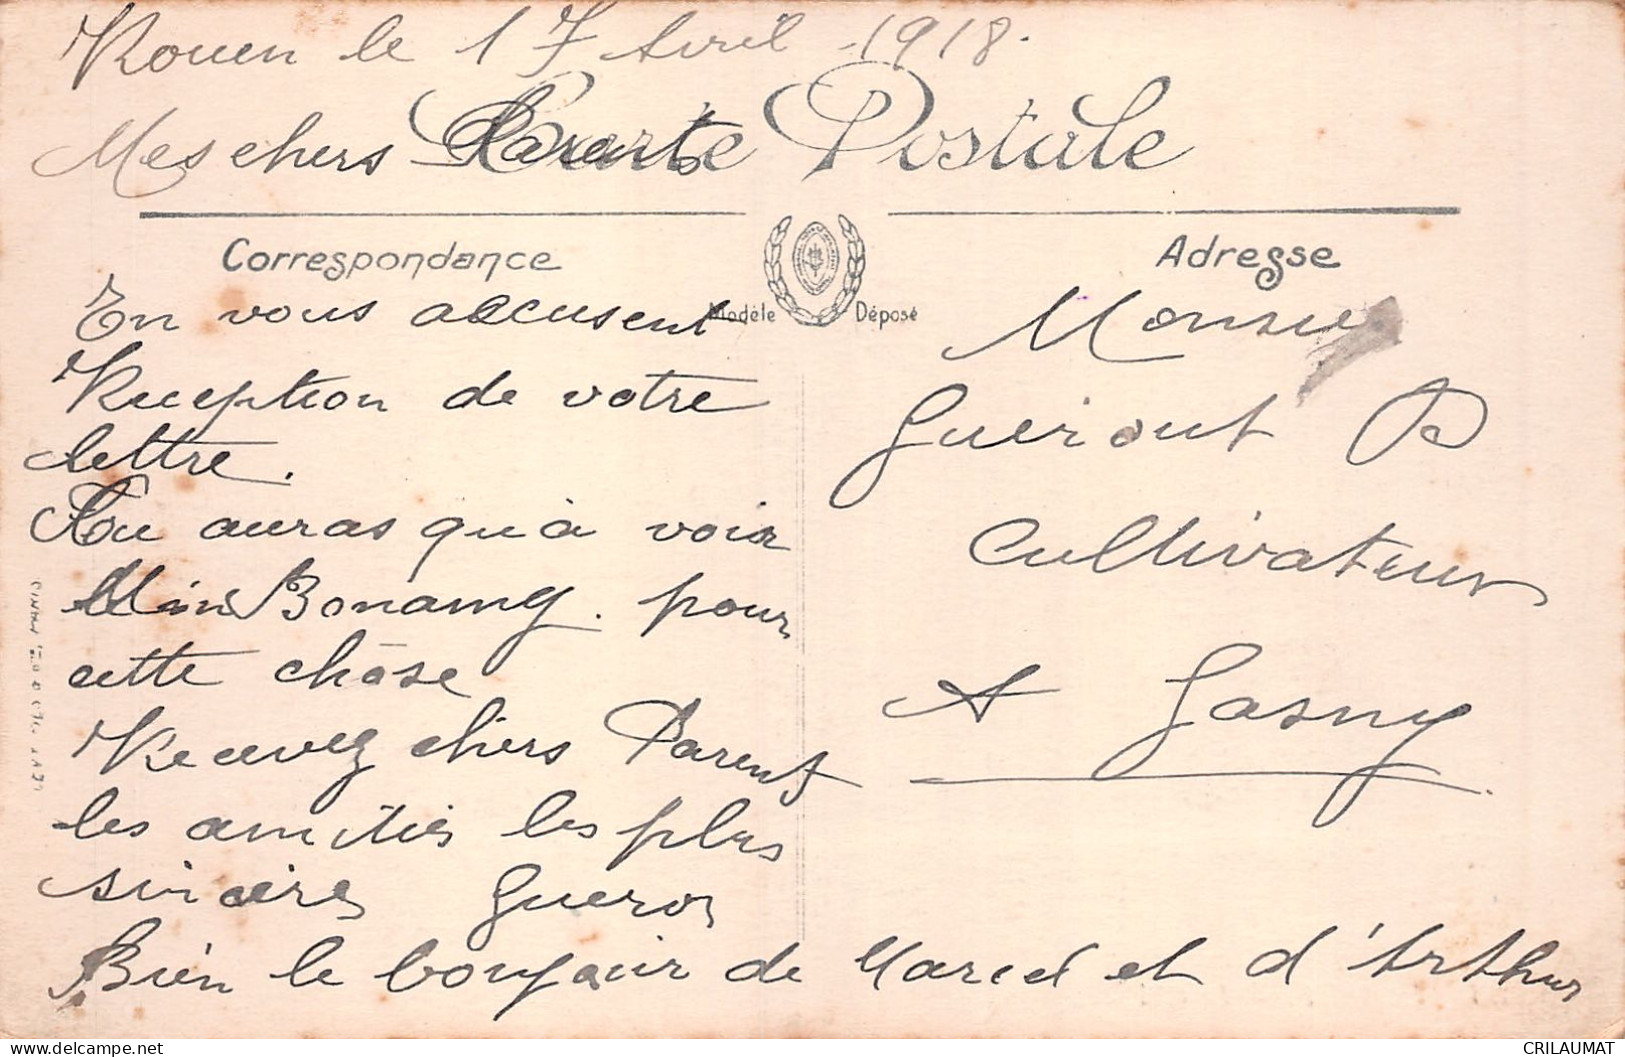 Rouen le 17 Avril 1918.
Mes chers Parents
Carte Postale
Correspondance
Adresse
Modèle Déposé
En vous accusent
Reception de votre
lettre.
Tu auras qu'à voir
Bonamy. pour
cette chôse
Recevez chers Parent
les amitiés les plus
sincères Gueroy
Bien le bonjour de Marcel et d'Arthur
Monsieur
Guerout P
Cultivateur
A Gasny
CRILAUMAT
delcampe.net